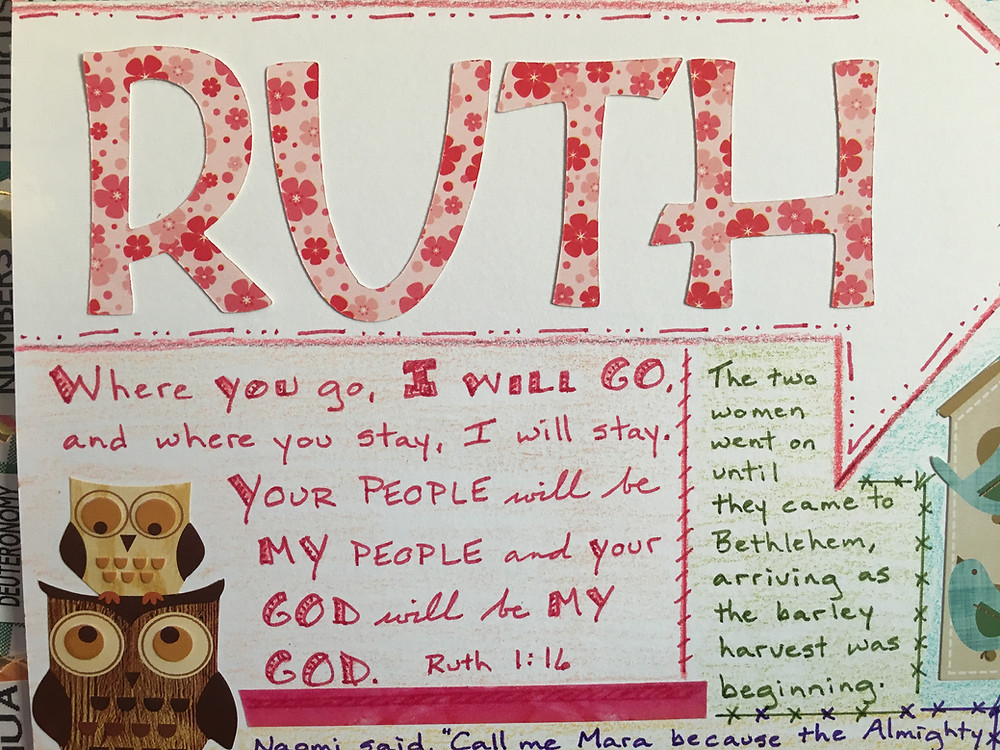 RUTH
Where you go, I WILL GO,
and where you stay, I will stay.
YOUR PEOPLE will be
MY PEOPLE and your
GOD will be MY
GOD. Ruth 1:16
The two
women
went on
until
they came to
Bethlehem,
arriving as
the barley
harvest was
beginning.
Naomi said, "Call me Mara because the Almighty
NUMBERS
DEUTERONOMY